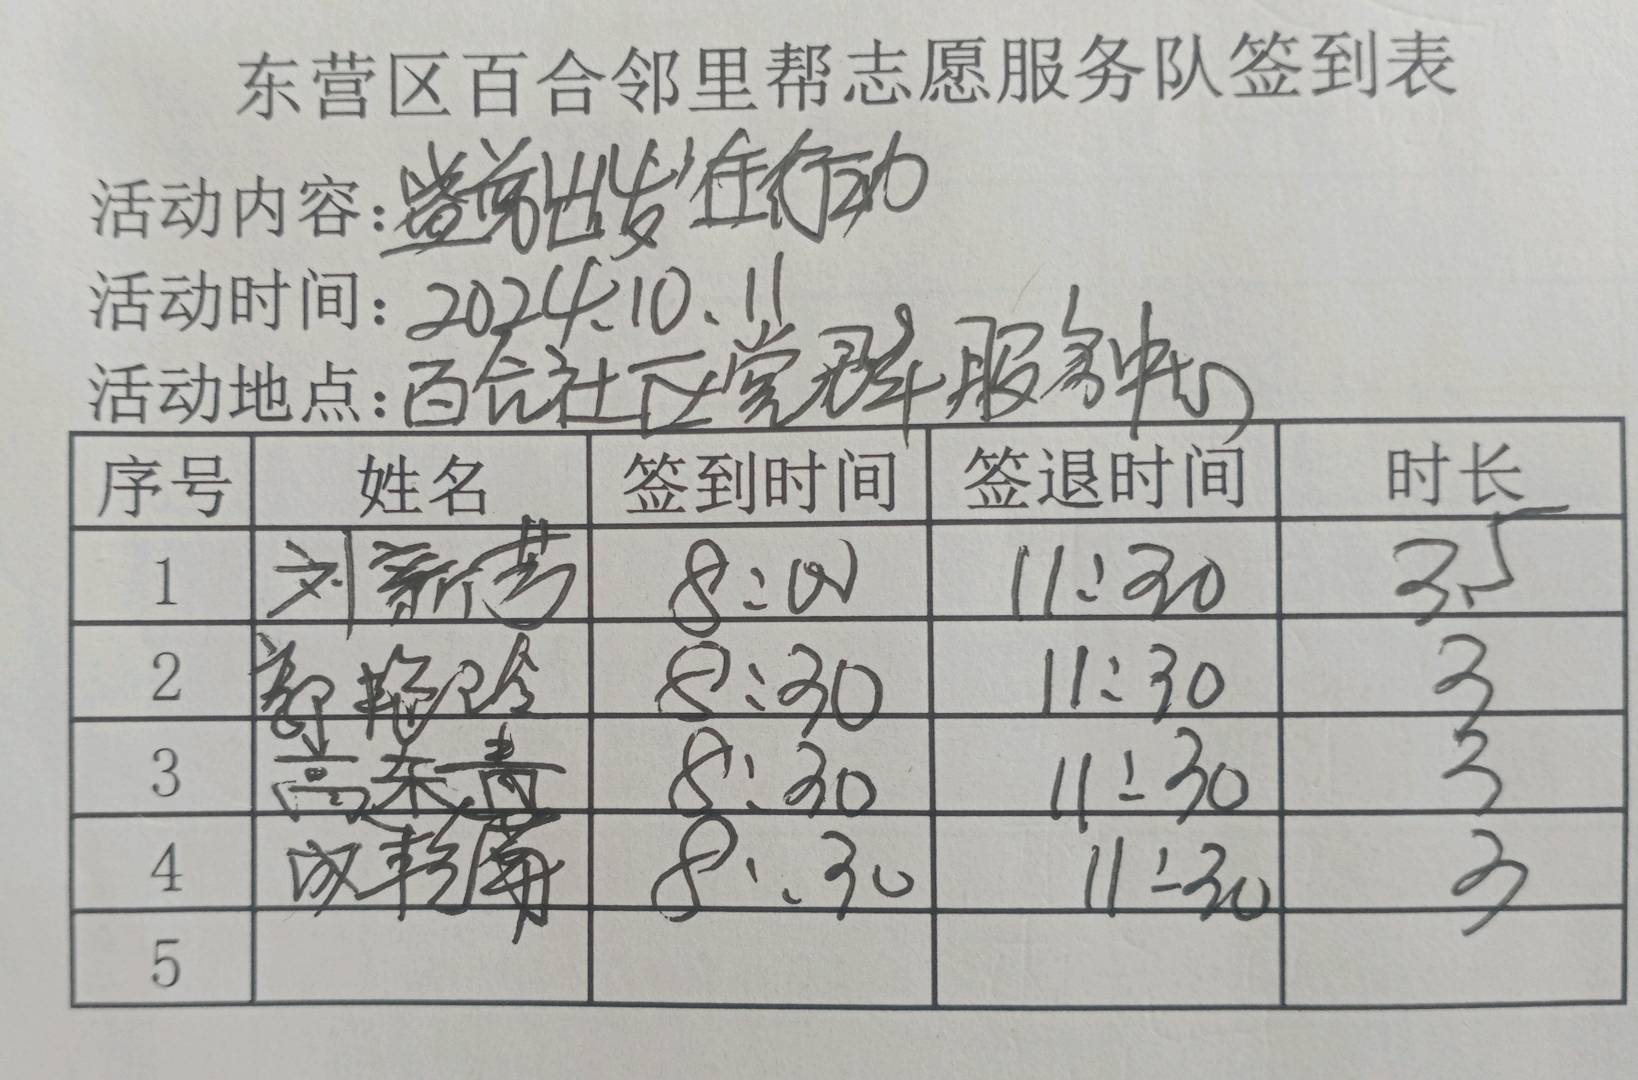 东营区百合邻里帮志愿服务队签到表
活动内容：出发 行动
活动时间：2024.10.11
活动地点：百合社区党群服务中心
序号 姓名 签到时间 签退时间 时长
1 刘新芳 8:00 11:30 3.5
2 郭艳玲 8:30 11:30 3
3 高东青 8:30 11:30 3
4 成 8:30 11:30 3
5